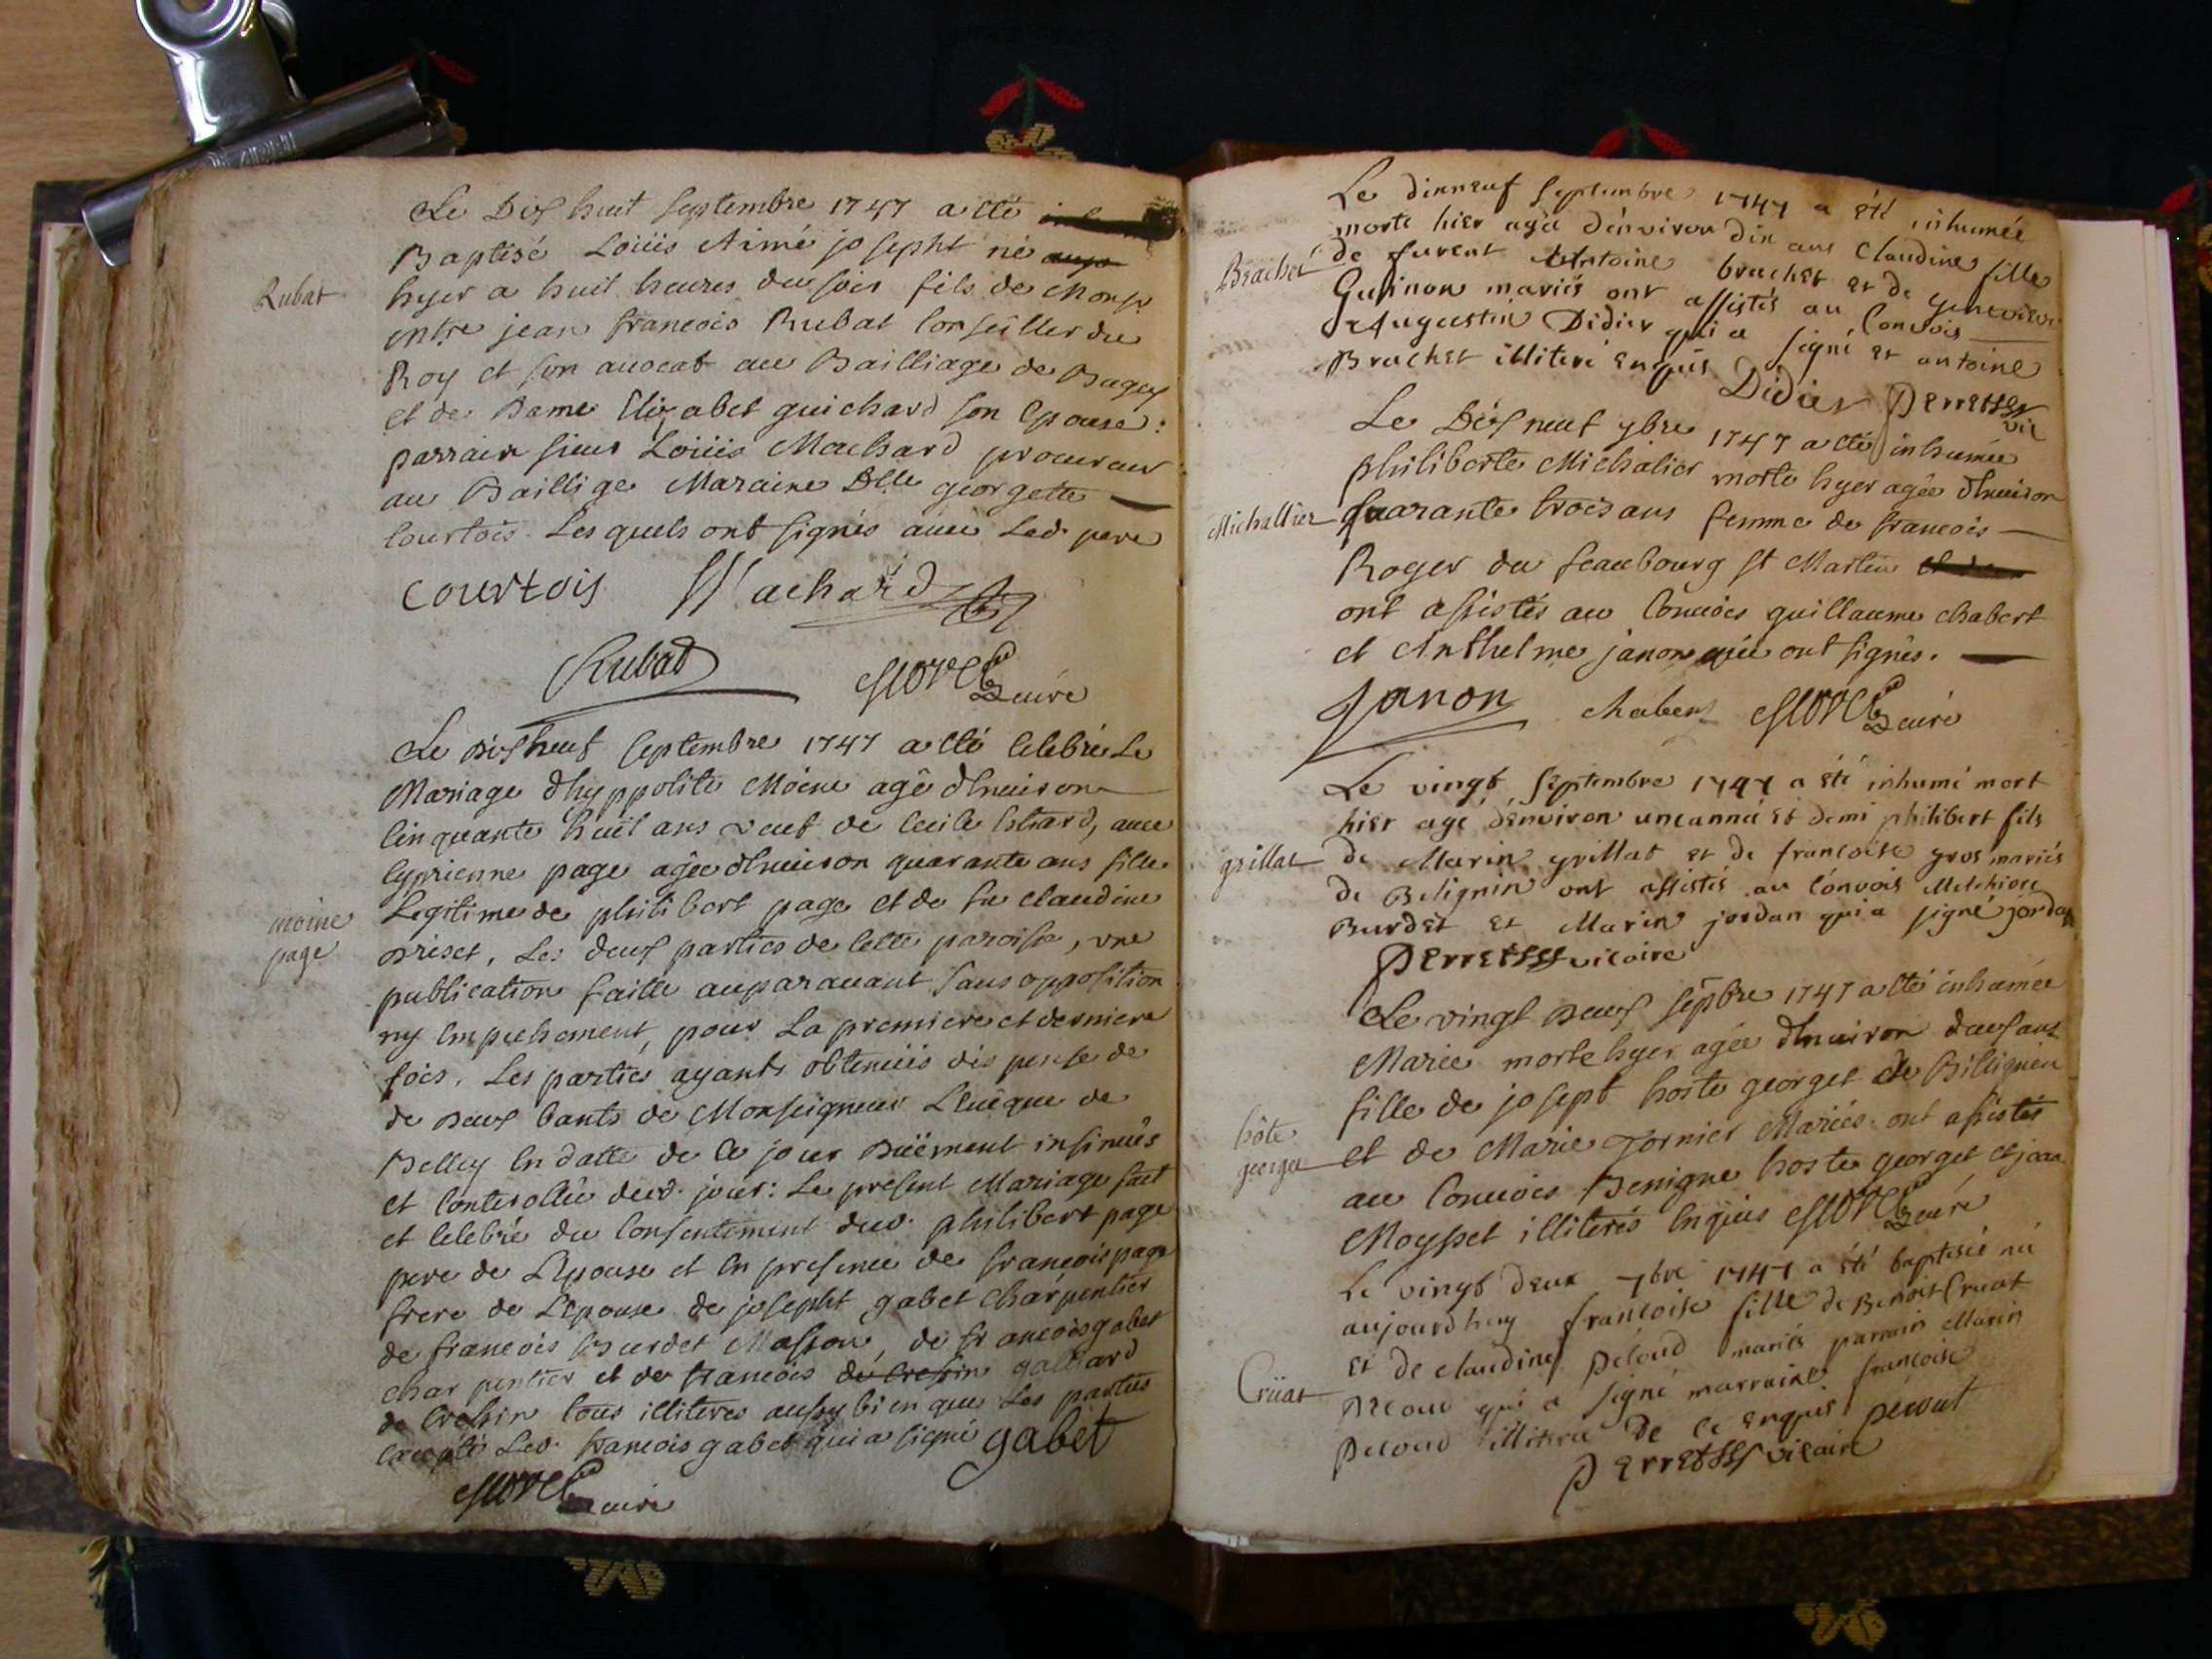 Le Dix huit septembre 1747 a eté
Baptisé Loüis Aimé josepht né
Rubat
hyer a huit heures du soir fils de Monsr
mtre jean francois Rubat Conseiller du
Roy et son avocat au Bailliage de Bugey
et de Dame Elizabet guichard son Epouse:
parrain sieur Loüis Machard procureur
au Baillige Maraine Dlle georgette
Courtois. Lesquels ont signés avec Led. pere
courtois Machard
Rubat Morel curé
Le Dixneuf septembre 1747 a eté Celebré Le
Mariage d'hyppolite Moine agé d'Environ
Cinquante huit ans veuf de Cecile, avec
Cyprienne page agée d'Environ quarante ans fille
moine
page
Legitime de philibert page et de fue claudine
priset, Les deux parties de Cette paroisse, une
publication faitte auparavant sans opposition
ny Empechement, pour La premiere et derniere
fois, Les parties ayants obtenües dispense de
de Deux bants de Monseigneur L'Eveque de
Belley En datte de Ce jour Düement insinuée
et Controllée dud. jour: Le present Mariage fait
et Celebré du Consentement dud. philibert page
pere de L'Epouse et En presence de francois page
frere de L'Epouse de josepht gabet charpentier
de francois Burdet Masson, de francois gabet
charpentier et de francois de Cressin galliard
de Cressin tous illiteres aussy bien que Les parties
Excepté Led. francois gabet qui a signé gabet
Morel curé
Le dixneuf septembre 1747 a été inhumée
morte hier agée d'énviron dix ans Claudine fille
Brachet
de furent Antoine brachet et de genevieve
Guinon mariés ont assistés au Convois
Augustin Didier qui a signé et antoine
Brachet illiteré enquis Didier Perret
vic
Le Dixneuf 7bre 1747 a eté inhumée
philiberte Michalier morte hyer agée d'Environ
Michallier
quarante trois ans femme de francois
Roger du feaubourg st Martin
ont assistés au Convois guillaume chabert
et Anthelme janon qui ont signés.
Janon chabert Morel curé
Le vingt septembre 1747 a été inhumé mort
hier agé d'énviron une année et demi philibert fils
grillat
de Marin grillat et de francoise gros mariés
de Belignin ont assistés au Cónvois Melchior
Burdet et Marin jordan qui a signé jordan
Perret vicaire
Le vingt Deux sepbre 1747 a eté inhumée
Marie morte hyer agée d'Environ deux ans
fille de josept hoste georget de Billignin
hôte
georget
et de Marie Tornier Mariés. ont assistés
au Convois Benigne hoste georget et jean
Moysset illiterés Enquis Morel curé
Le vingt deux 7bre 1747 a été baptisée née
aujourdhuy francoise fille de Benoit Cruat
et de claudine Peloud mariés parrain Marin
Crüat
Peloud qui a signé marraine francoise
Peloud illiterée de ce enquis pelout
Perret vicaire